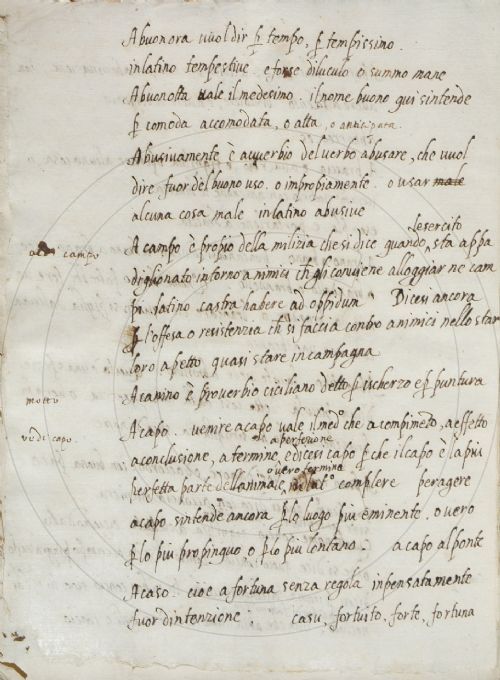 Abuonora vuol dir ꝑ tempo, ꝑ tempissimo.
in latino tempestive e forse diluculo o summo mane
Abuonotta vale il medesimo. il nome buono qui s'intende
ꝑ comoda accomodata, o alta, o anticipata.
Abusivamente è avverbio del verbo abusare, che vuol
dire fuor del buono uso. o impropiamente. o usar male
alcuna cosa male in latino abusive
lesercito
a campo
A campo è propio della milizia che si dice quando sta appa
diglionato intorno a nimici ch gli conviene alloggiar ne cam
pi latino castra habere ad oppidum Dicesi ancora
ꝑ l'offesa o resistenzia ch si faccia contro a nimici nello star
loro a petto quasi stare in campagna
A camino è proverbio ciciliano detto ꝑ ischerzo e ꝑ puntura
motto
vedi capo.
A capo. venire a capo vale il med.º che a compimeto, a effetto
a perfezione
a conclusione, a termine, e dicesi capo ꝑ che il capo è la più
o vero termina
perfetta parte dell'anima complere peragere
a capo s'intende ancora ꝑ lo luogo più eminente. o vero
ꝑ lo più propinquo o ꝑ lo più lontano. a capo al ponte
A caso. cioè a fortuna senza regola inpensatamente
fuor d'intenzione casu, fortuito, forte, fortuna